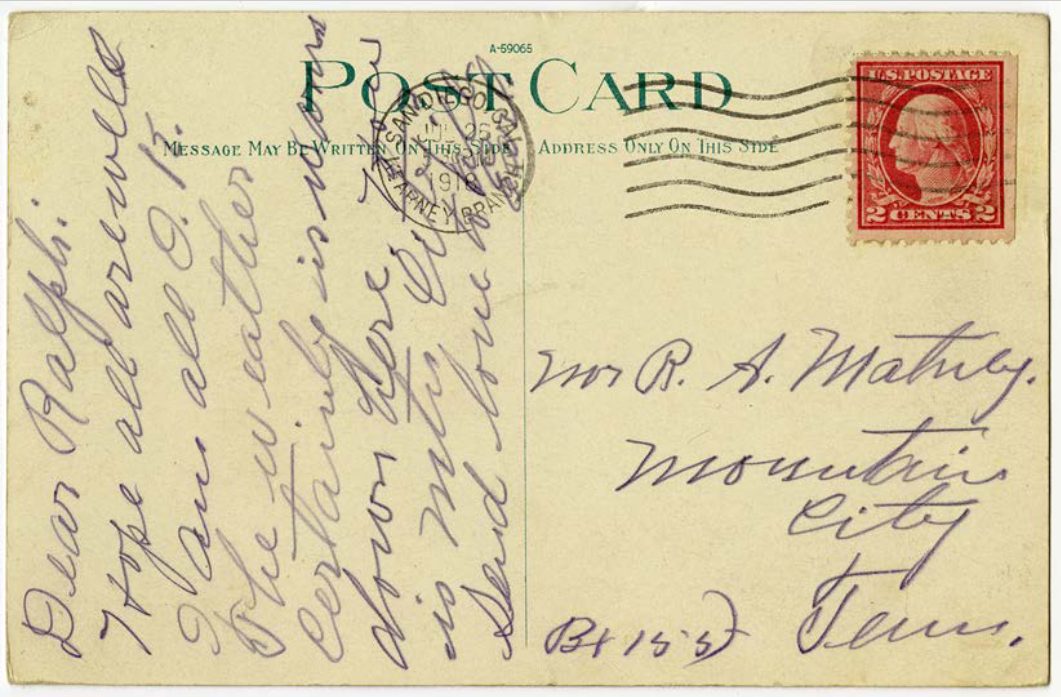 A-59065
POST CARD
MESSAGE MAY BE WRITTEN ON THIS SIDE
ADDRESS ONLY ON THIS SIDE
U.S. POSTAGE
2 CENTS 2
SAN DIEGO, CAL.
JUL 26
1918
KEARNEY BRANCH
Dear Ralph:
Hope all are well
I am all O.K.
The weather
certainly is warm
down here.
is
Send love
Mr R. A. Matney.
Mountain
City
Tenn.
Bx 155